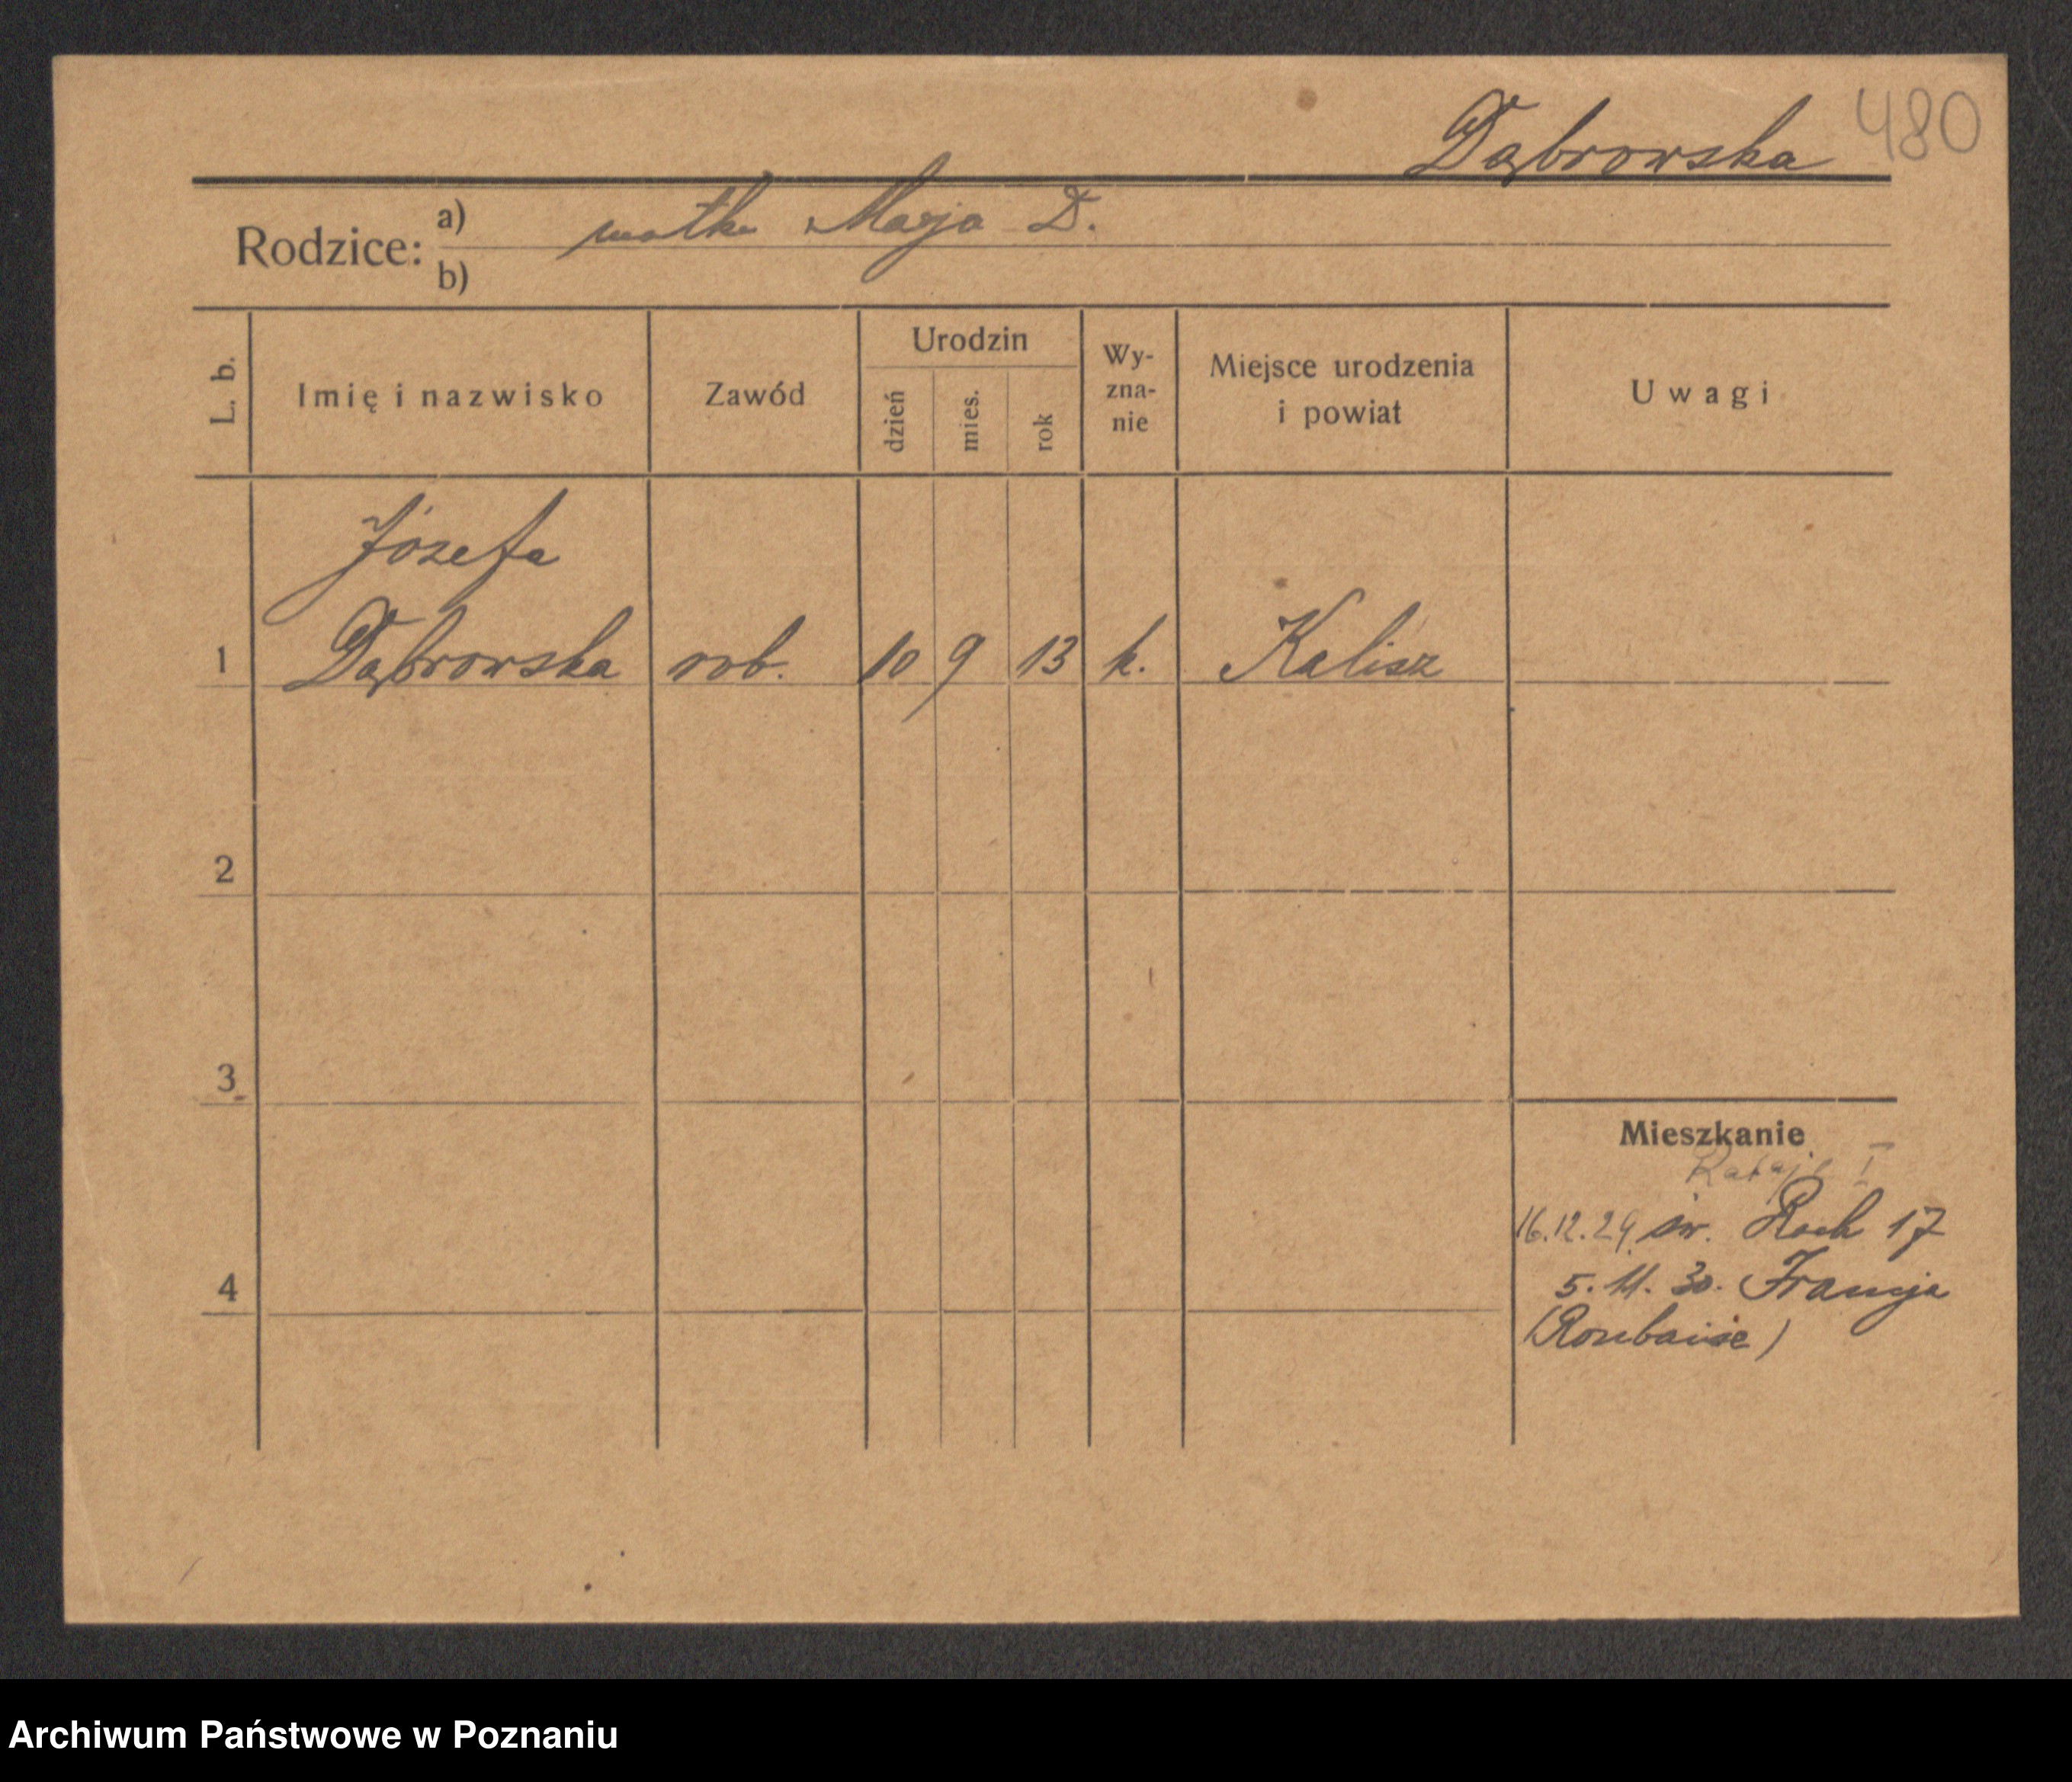 480
Dąbrowska
Rodzice: a) matka Marja D.
b)
L. b. Imię i nazwisko Zawód Urodzin dzień mies. rok Wy-zna-nie Miejsce urodzenia i powiat Uwagi
Józefa
1 Dąbrowska rob. 10 9 13 k. Kalisz
2
3
Mieszkanie
Rataje I
16.12.29 św. Roch 17
4 5. 11. 30. Francja
(Roubaise)
Archiwum Państwowe w Poznaniu